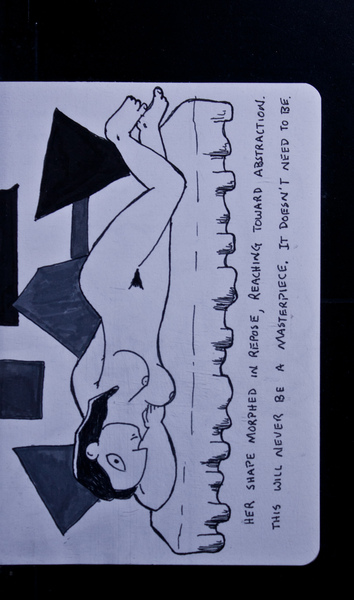 HER SHAPE MORPHED IN REPOSE, REACHING TOWARD ABSTRACTION.
THIS WILL NEVER BE A MASTERPIECE. IT DOESN'T NEED TO BE.